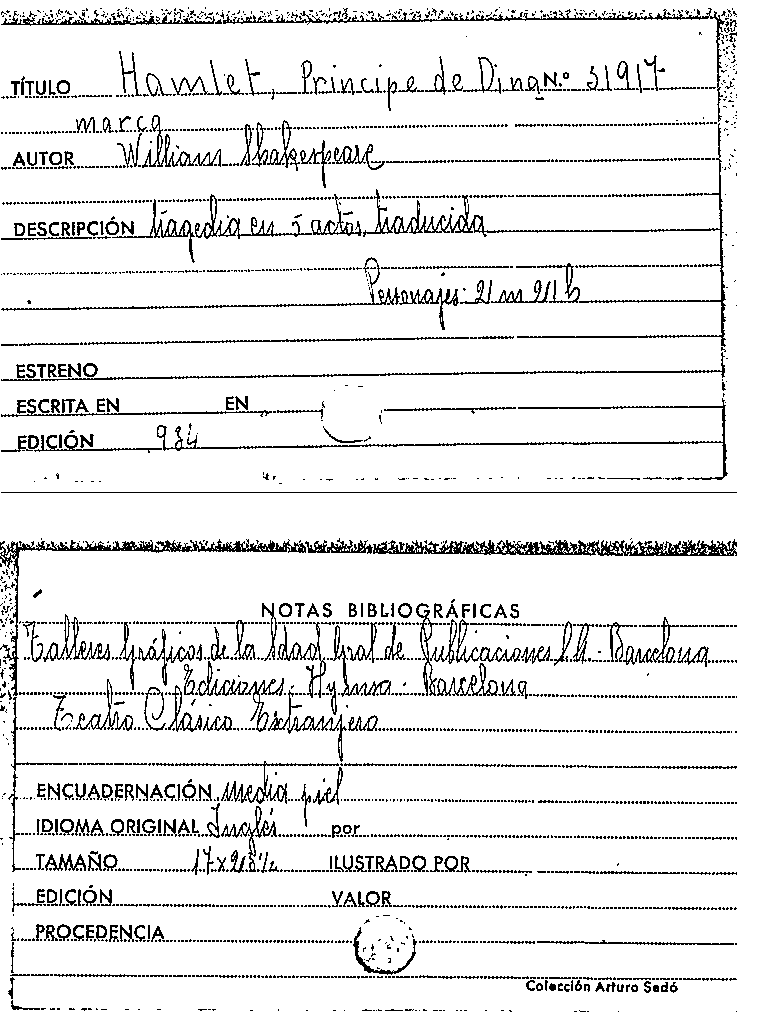 TÍTULO Hamlet, Principe de Dina N.º 51917
marca
AUTOR William Shakespeare
DESCRIPCIÓN tragedia en 5 actos, traducida
Personajes: 21 m 2 h
ESTRENO
ESCRITA EN EN
EDICIÓN 934
NOTAS BIBLIOGRÁFICAS
Talleres gráficos de la Sdad Gral de Publicaciones S.A. - Barcelona
Ediciones Hymsa - Barcelona
Teatro Clásico Extranjero
ENCUADERNACIÓN media piel
IDIOMA ORIGINAL Inglés por
TAMAÑO ILUSTRADO POR
EDICIÓN VALOR
PROCEDENCIA
Colección Arturo Sedó